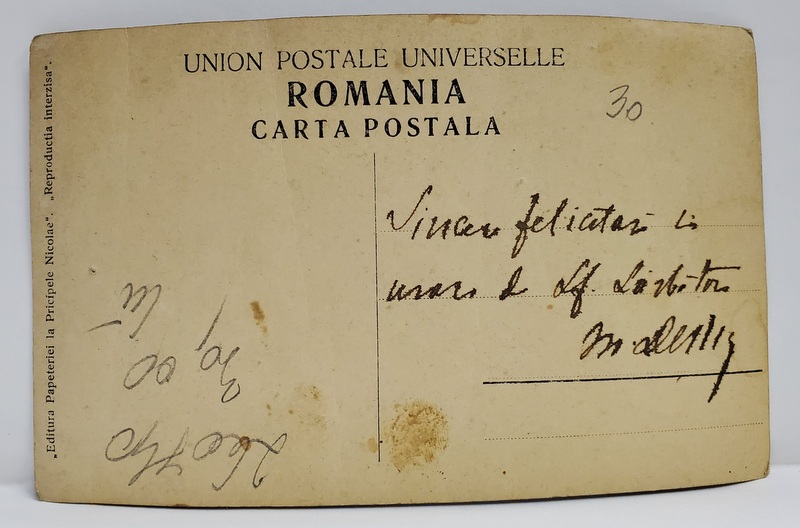 UNION POSTALE UNIVERSELLE
ROMANIA
CARTA POSTALA
30
„Editura Papeteriei la Pricipele Nicolae“. „Reproductia interzisa“.
Sincere felicitari si
urari de Sf. Sărbători
30,00
lei